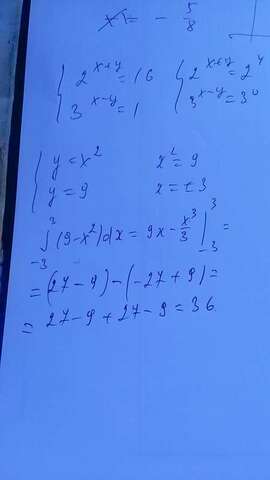 x = - 5/8
{ 2^(x+y) = 16 { 2^(x+y) = 2^4
3^(x-y) = 1 3^(x-y) = 3^0
{ y = x^2 x^2 = 9
y = 9 x = ±3
∫_{-3}^{3} (9-x^2)dx = 9x - x^3/3 |_{-3}^{3} =
= (27-9) - (-27+9) =
= 27-9+27-9 = 36